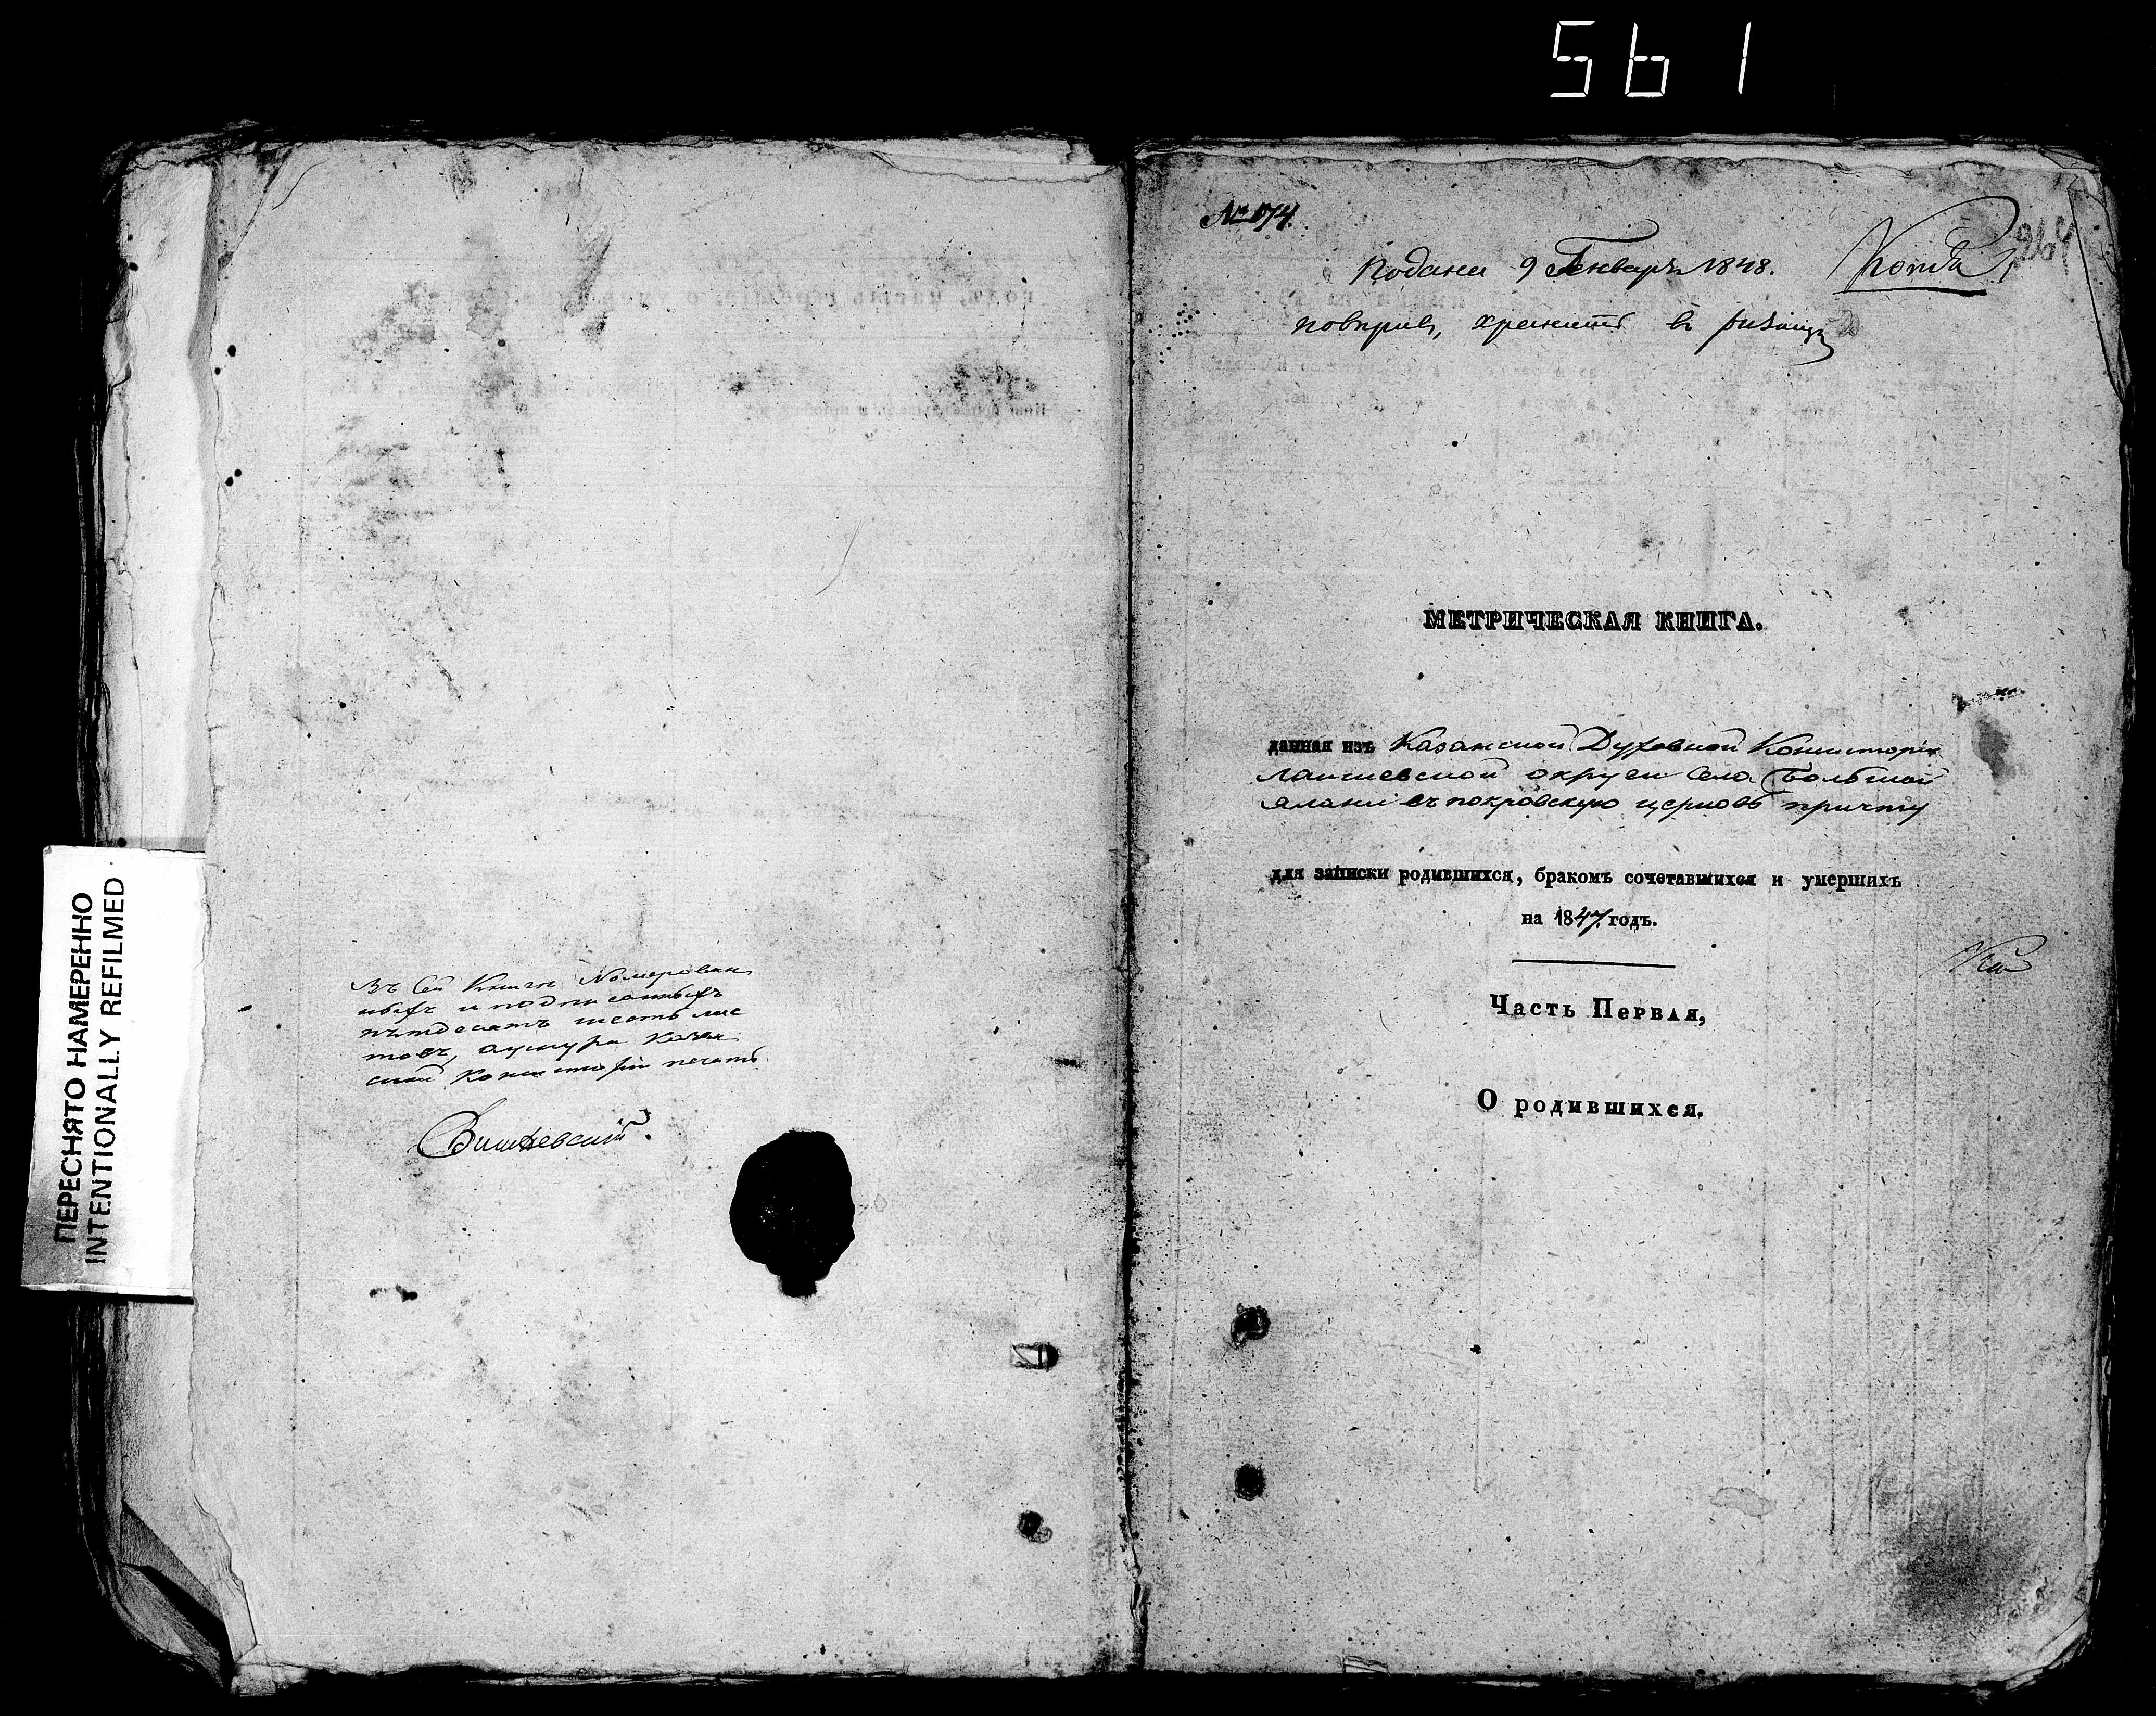 561
ПЕРЕСНЯТО НАМЕРЕННО
INTENTIONALLY REFILMED
Въ Сей Книгѣ Номерован
ныхъ и подписанныхъ
пятдесятъ шесть лис
товъ, у шнура Казан
ской Консисторіи печать
Вишневскій.
№ 174.
264
Подана 9 Генваря 1848.
повѣрив, хранить въ
МЕТРИЧЕСКАЯ КНИГА.
данная изъ Казанской Духовной Консисторіи
Лаишевской округи села Большой
Елани въ покровскую церковь причту
для записки родившихся, бракомъ сочетавшихся и умершихъ
на 1847 годъ.
Часть Первая,
О родившихся.